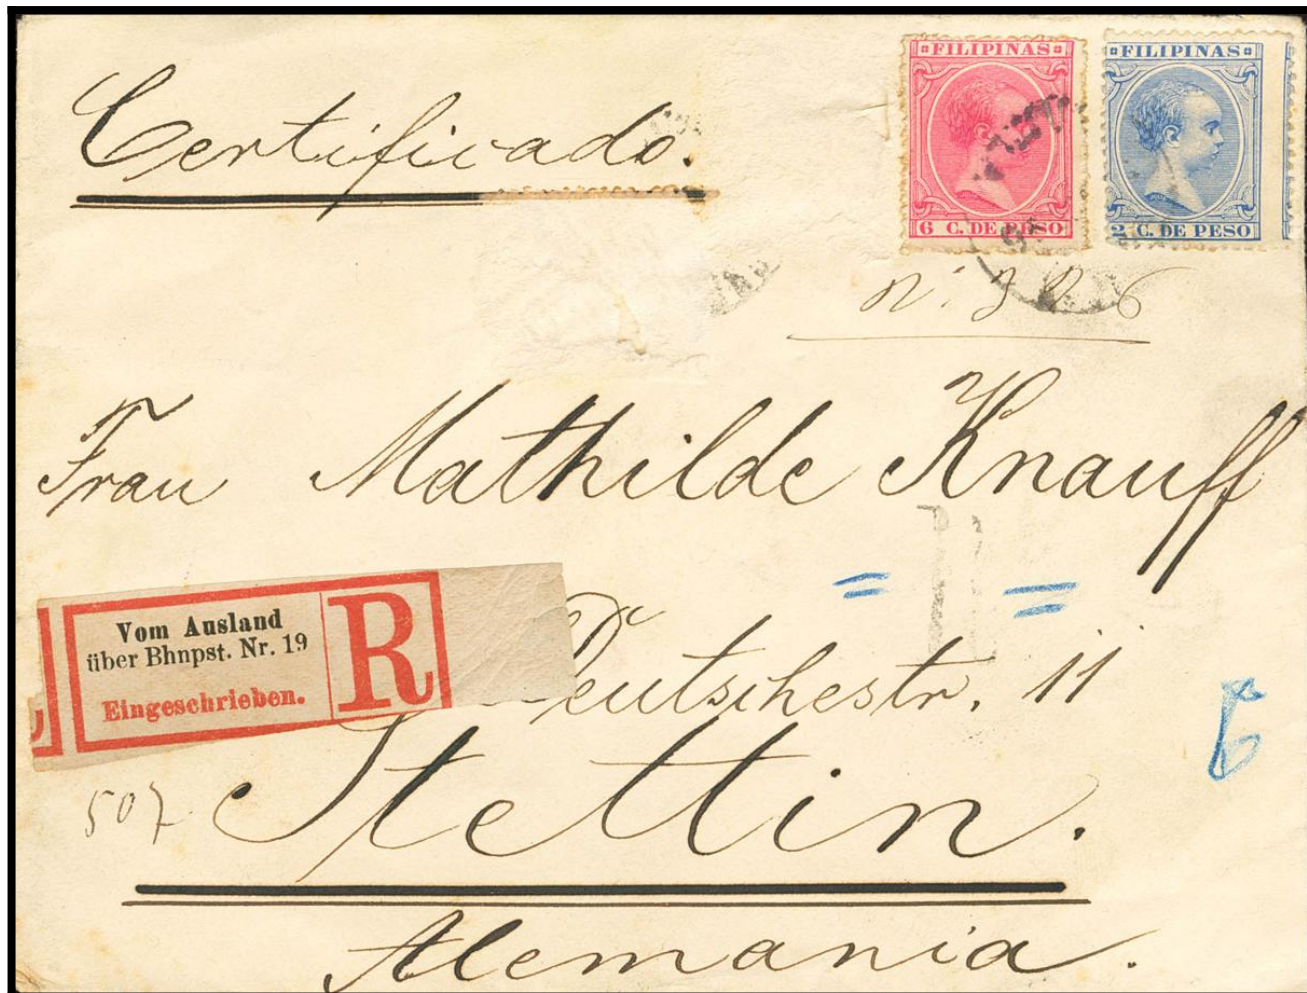 Certificado.
FILIPINAS
6 C. DE PESO
FILIPINAS
2 C. DE PESO
Frau Mathilde Knauff
R
Vom Ausland
über Bhnpst. Nr. 19
Eingeschrieben.
R
Deutschestr. 11
507
Stettin.
Alemania.